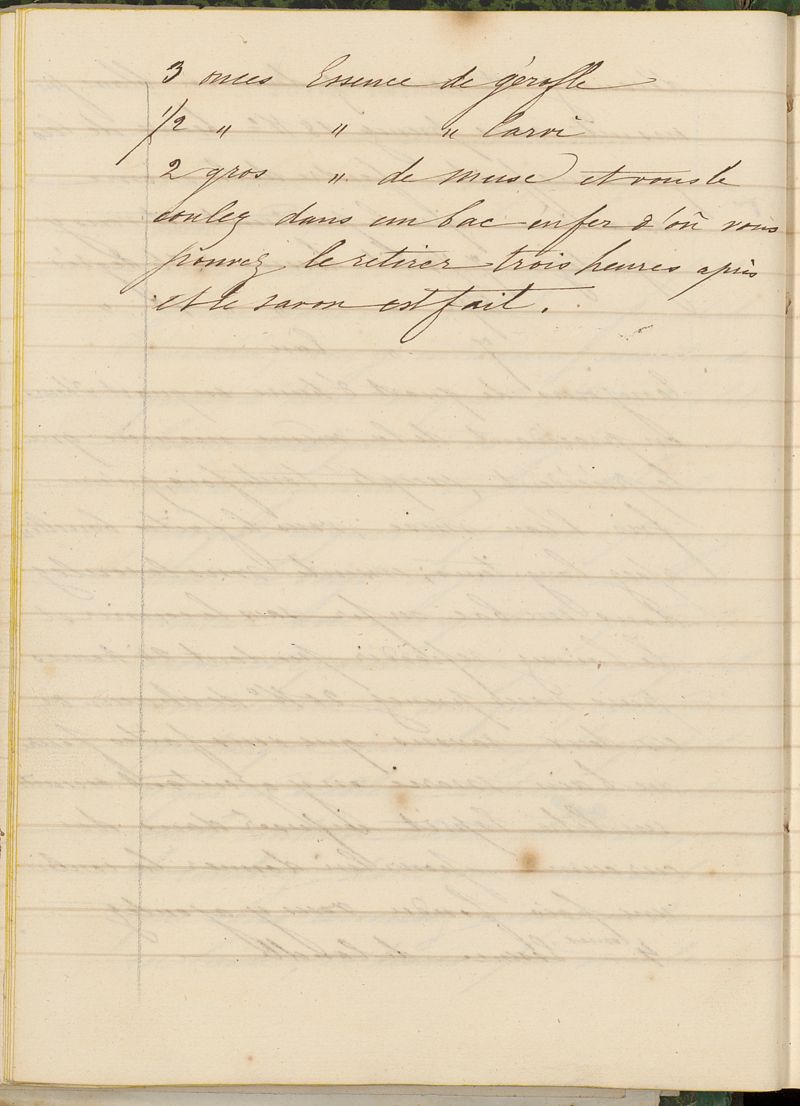 3 onces Essence de gérofle
1/2 " " " Carvi
2 gros " de musc et vous le
coulez dans un bac en fer d'où vous
pouvez le retirer trois heures après
et le savon est fait.